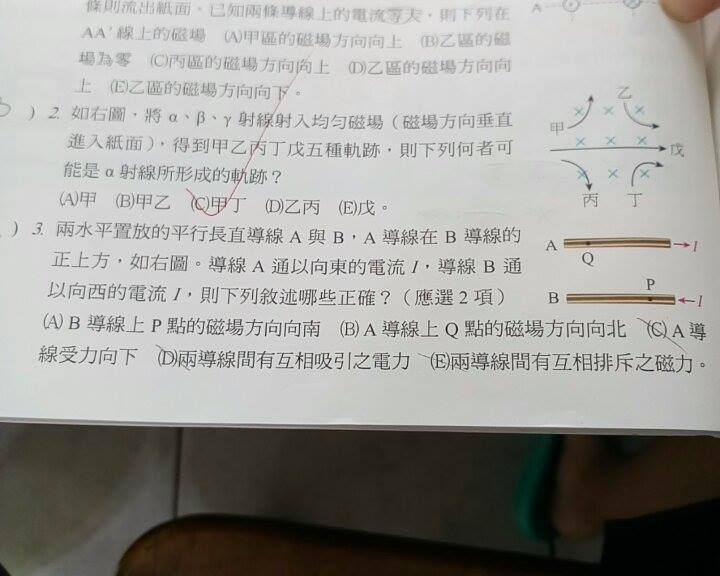 條則流出紙面。已知兩條導線上的電流等大，則下列在
AA' 線上的磁場 (A)甲區的磁場方向向上 (B)乙區的磁
場為零 (C)丙區的磁場方向向上 (D)乙區的磁場方向向
上 (E)乙區的磁場方向向下。
) 2. 如右圖，將 α、β、γ 射線射入均勻磁場（磁場方向垂直
進入紙面），得到甲乙丙丁戊五種軌跡，則下列何者可
能是 α 射線所形成的軌跡？
(A)甲 (B)甲乙 (C)甲丁 (D)乙丙 (E)戊。
) 3. 兩水平置放的平行長直導線 A 與 B，A 導線在 B 導線的
正上方，如右圖。導線 A 通以向東的電流 I，導線 B 通
以向西的電流 I，則下列敘述哪些正確？（應選 2 項）
(A) B 導線上 P 點的磁場方向向南 (B) A 導線上 Q 點的磁場方向向北 (C) A 導
線受力向下 (D)兩導線間有互相吸引之電力 (E)兩導線間有互相排斥之磁力。
A
乙
甲
戊
丙 丁
A I
Q
P
B I